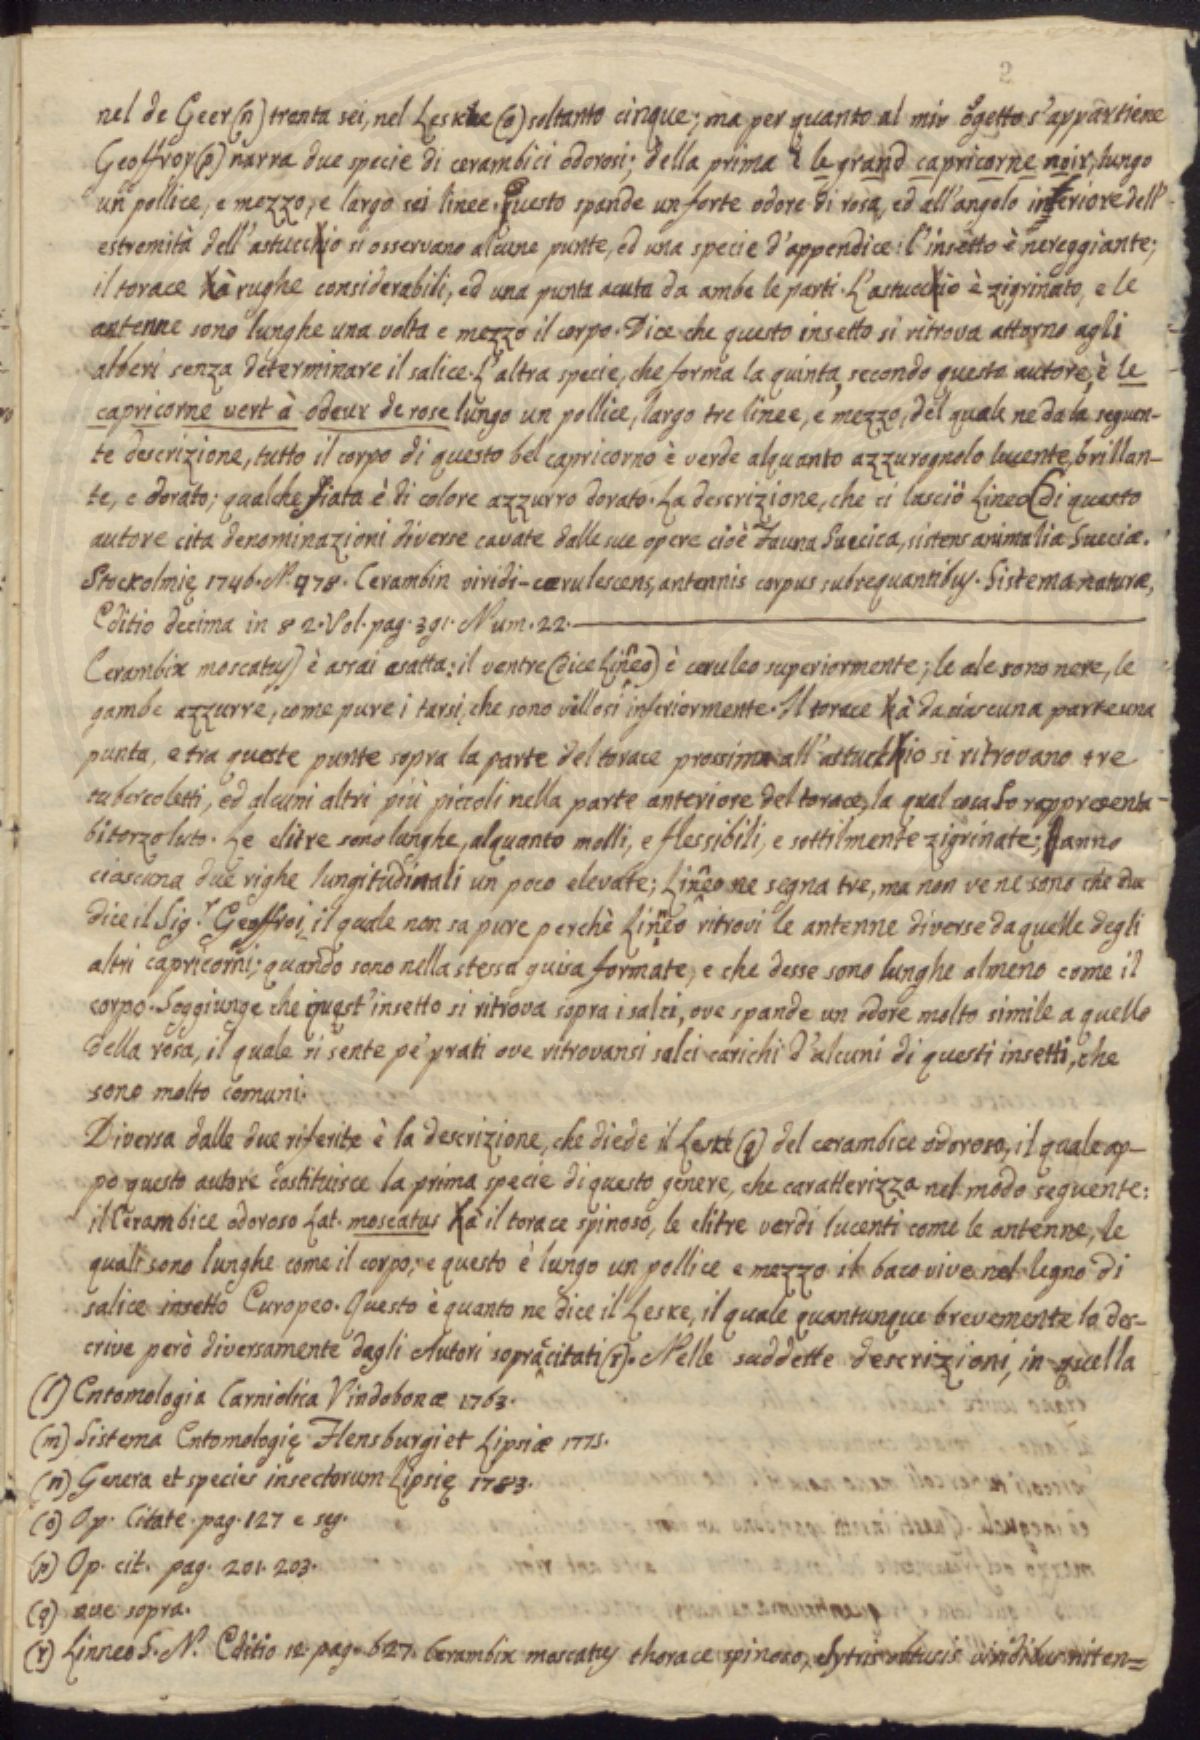 2
nel de Geer (n) trenta sei, nel Leske (o) soltanto cinque; ma per quanto al mio ogetto s'appartiene
Geoffroy (p) narra due specie di cerambici odorosi; della prima è le grand capricorne noir, lungo
un pollice, e mezzo, e largo sei linee. Questo spande un forte odore di rosa, ed all'angolo inferiore dell'
estremità dell'astuccio si osservano alcune punte, ed una specie d'appendice: l'insetto è nereggiante;
il torace à rughe considerabili, ed una punta acuta da ambe le parti. L'astuccio è zigrinato, e le
antenne sono lunghe una volta e mezzo il corpo. Dice che questo insetto si ritrova attorno agli
alberi senza determinare il salice. L'altra specie, che forma la quinta, secondo questo autore, è le
capricorne vert à odeur de rose lungo un pollice, largo tre linee, e mezzo, del quale ne da la seguen-
te descrizione, tutto il corpo di questo bel capricorno è verde alquanto azzurognolo lucente, brillan-
te, e dorato; qualche fiata è di colore azzurro dorato. La descrizione, che ci lasciò Lineo (di questo
autore cita denominazioni diverse cavate dalle sue opere cioè Fauna Suecica, sistens animalia Sueciæ.
Stockolmię 1746. N. 478. Cerambin viridi-cærulescens, antennis corpus subæquantibus. Sistema naturæ,
Editio decima in 8 2. Vol. pag. 391. Num. 22.
Cerambix moscatus) è assai esatta: il ventre (dice Lineo) è ceruleo superiormente; le ale sono nere, le
gambe azzurre, come pure i tarsi, che sono villosi inferiormente. Il torace à da ciascuna parte una
punta, e tra queste punte sopra la parte del torace prossima all'astuccio si ritrovano tre
tubercoletti, ed alcuni altri più piccoli nella parte anteriore del torace, la qual cosa lo rappresenta
bitorzoluto. Le elitre sono lunghe, alquanto molli, e flessibili, e sottilmente zigrinate; anno
ciascuna due righe lungitudinali un poco elevate; Lineo ne segna tre, ma non ve ne sono che due
dice il Sig.r Geoffroi, il quale non sa pure perchè Lineo ritrovi le antenne diverse da quelle degli
altri capricorni; quando sono nella stessa guisa formate, e che desse sono lunghe almeno come il
corpo. Soggiunge che quest'insetto si ritrova sopra i salci, ove spande un odore molto simile a quello
della rosa, il quale si sente pe' prati ove ritrovansi salci carichi d'alcuni di questi insetti, che
sono molto comuni.
Diversa dalle due riferite è la descrizione, che diede il Leske (q) del cerambice odoroso, il quale ap-
po questo autore costituisce la prima specie di questo genere, che caratterizza nel modo seguente:
il Cerambice odoroso Lat. moscatus à il torace spinoso, le elitre verdi lucenti come le antenne, le
quali sono lunghe come il corpo, e questo è lungo un pollice e mezzo il baco vive nel legno di
salice insetto Europeo. Questo è quanto ne dice il Leske, il quale quantunque brevemente lo des-
crive però diversamente dagli Autori sopraccitati (r). Nelle suddette descrizioni, in quella
(l) Entomologia Carniolica Vindobonæ 1763.
(m) Sistema Entomologię Flensburgi et Lipsiæ 1775.
(n) Genera et species insectorum Lipsię 1783.
(o) Op. Citate pag. 127 e seg.
(p) Op. cit. pag. 201. 203.
(q) ove sopra.
(r) Linneo S. N. Editio 12. pag. 627. Cerambix moscatus thorace spinoso, elytris obtusis viridibus niten=